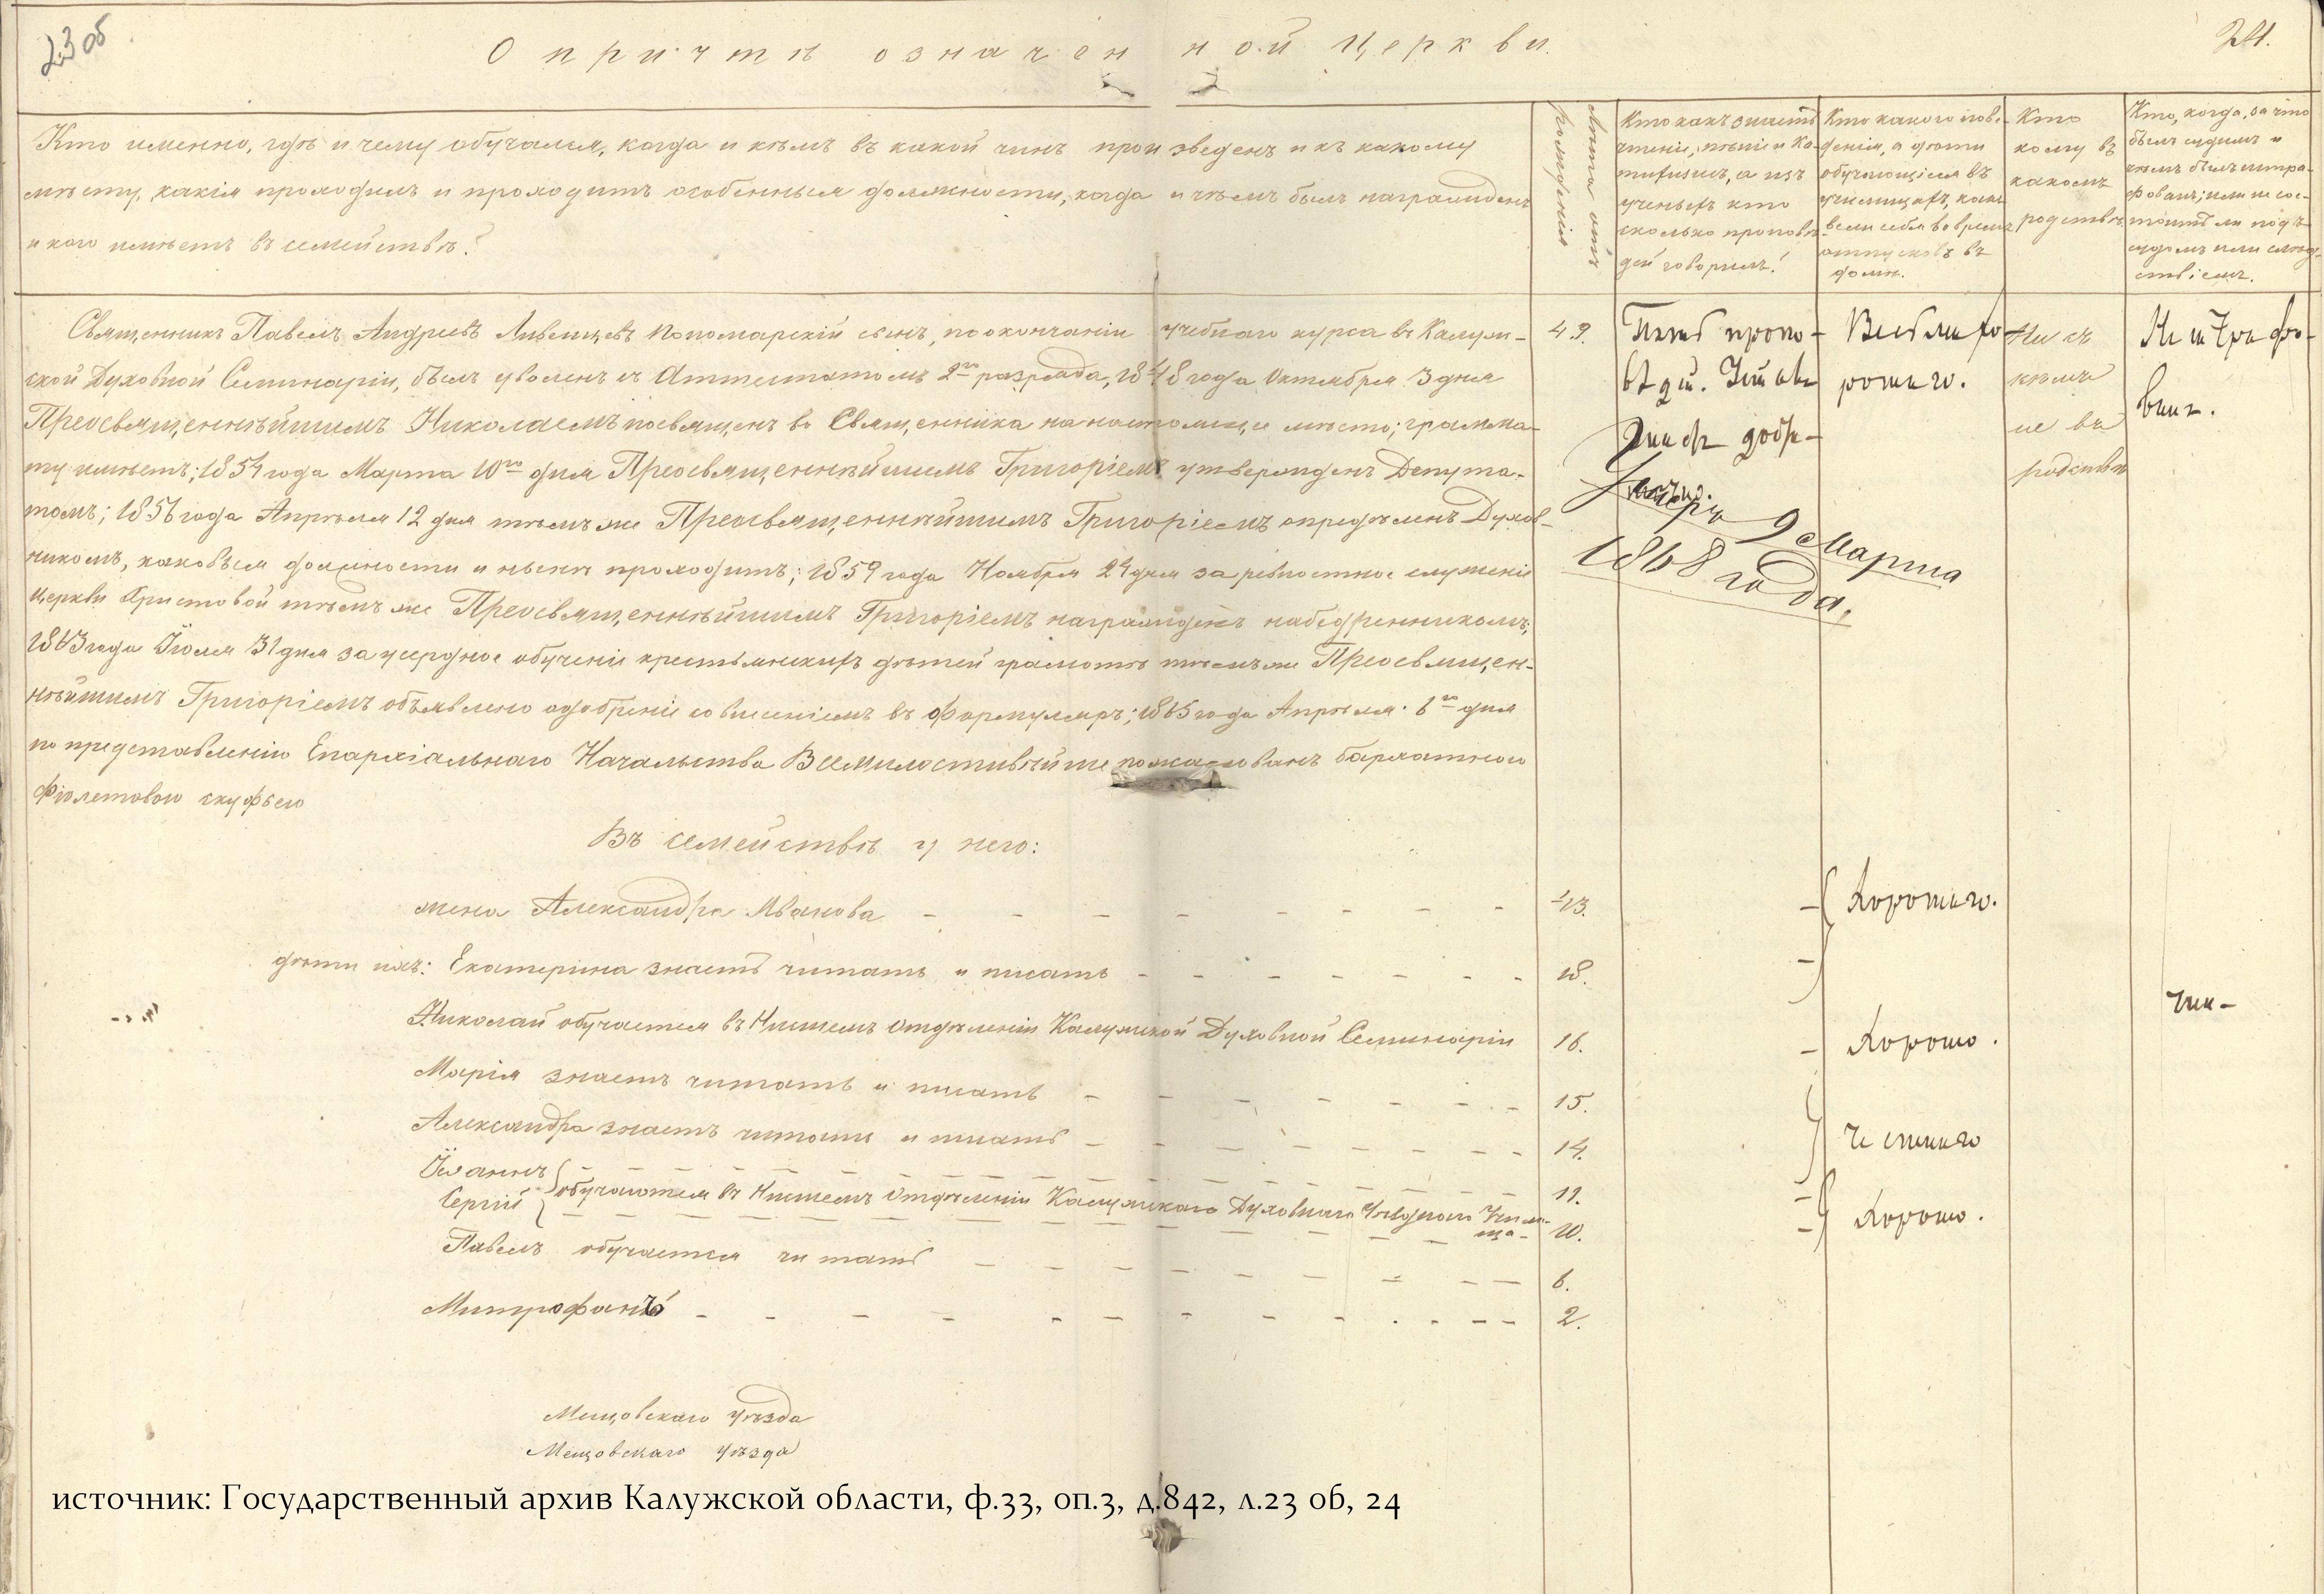 23 об
24.
О причтѣ означенной Церкви.
Кто именно, гдѣ и чему обучался, когда и кѣмъ въ какой чинъ произведенъ и къ какому
мѣсту, какія проходилъ и проходитъ особенныя должности, когда и чѣмъ былъ награжденъ
и кого имѣетъ въ семействѣ?
Лѣта отъ
рожденія
Кто какъ знаетъ
чтеніе, пѣніе и Ка-
тихизисъ, а изъ
ученыхъ кто
сколько проповѣ-
дей говорилъ?
Кто какого пове-
денія, а дѣти
обучающіеся въ
училищахъ, какъ
вели себя во время
отпусковъ въ
домы.
Кто
кому въ
какомъ
родствѣ
Кто, когда, за что
былъ судимъ и
чѣмъ былъ штра-
фованъ; или не сос-
тоитъ ли подъ
судомъ или слѣд-
ствіемъ.
Священникъ Павелъ Андреевъ Ливенцевъ пономарскій сынъ, по окончаніи учебнаго курса въ Калуж-
ской Духовной Семинаріи, былъ уволенъ съ Аттестатомъ 2го разряда, 1848 года Октября 3 дня
Преосвященнѣйшимъ Николаемъ посвященъ во Священника на настоящее мѣсто; грамма-
ту имѣетъ; 1854 года Марта 10го дня Преосвященнѣйшимъ Григоріемъ утвержденъ Депута-
томъ; 1856 года Апрѣля 12 дня тѣмъ же Преосвященнѣйшимъ Григоріемъ опредѣленъ Духов-
никомъ, каковыя должности и нынѣ проходитъ; 1859 года Ноября 24 дня за ревностное служеніе
Церкви Христовой тѣмъ же Преосвященнѣйшимъ Григоріемъ награжденъ набедренникомъ;
1863 года Іюля 31 дня за усердное обученіе крестьянскихъ дѣтей грамотѣ тѣмъ же Преосвящен-
нѣйшимъ Григоріемъ объявлено одобреніе со внесеніемъ въ Формуляръ; 1865 года Апрѣля 6го дня
по представленію Епархіальнаго Начальства Всемилостивѣйше пожалованъ бархатною
фіолетовою скуфьею
49.
проповѣдей.
Весьма хо-
рошаго.
Ни съ
кѣмъ
не въ
родствѣ
Не штрафо-
ванъ.
Умеръ 9 Марта
1868 года.
Въ семействѣ у него:
жена Александра Иванова 43. Хорошаго.
дѣти ихъ: Екатерина знаетъ читать и писать 18.
Николай обучается въ Низшемъ Отдѣленіи Калужской Духовной Семинаріи 16. Хорошо.
Марія знаетъ читать и писать 15.
Александра знаетъ читать и писать 14. Честнаго
Іоаннъ 11.
Сергій обучаются въ Низшемъ Отдѣленіи Калужскаго Духовнаго Уѣзднаго Учили-
ща 10. Хорошо.
Павелъ обучается читать 6.
Митрофанъ 2.
Мещовскаго уѣзда
Мещовскаго уѣзда
источник: Государственный архив Калужской области, ф.33, оп.3, д.842, л.23 об, 24